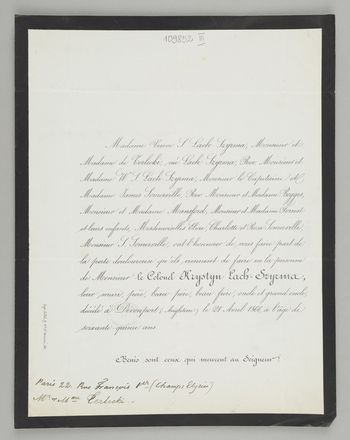 109852 III
Madame Veuve S. Lach Szyrma, Monsieur et
Madame de Terlecki, née Lach Szyrma, Rev. Monsieur et
Madame W. S. Lach Szyrma, Monsieur le Capitaine et
Madame James Somerville, Rev. Monsieur et Madame Boggis,
Monsieur et Madame Monsieur et Madame Forrest
et leurs enfants, Mesdemoiselles Charlotte et Rosa Somerville,
Monsieur S. Somerville, ont l'honneur de vous faire part de
la perte douloureuse qu'ils viennent de faire en la personne
de Monsieur le Colonel Krystyn Lach-Szyrma,
leur mari, père, beau père, beau frère, oncle et grand oncle,
décédé à Devonport, (Angleterre) le 21 Avril 1866, à l'âge de
soixante quinze ans.
Bénis sont ceux qui meurent au Seigneur!
Paris 22. Rue François 1er (Champs Elysées)
Mr & Mme Terlecki.